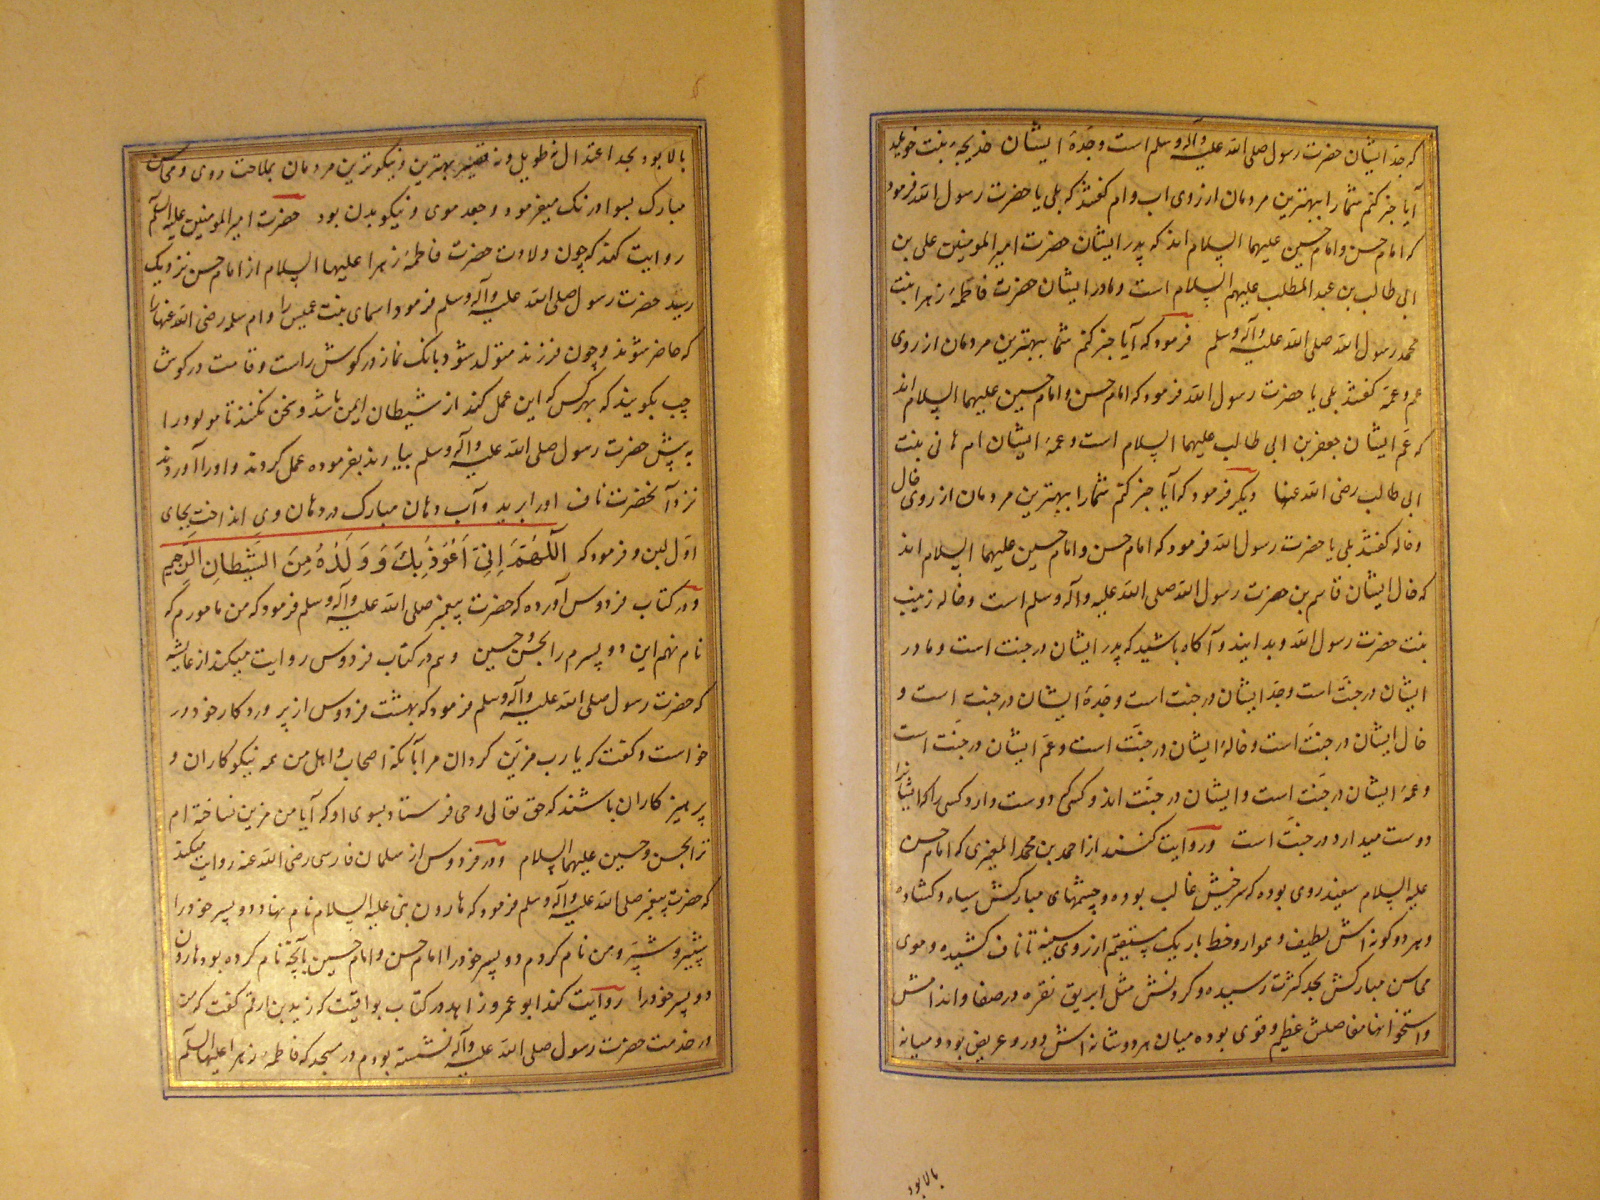 که جد ایشان حضرت رسول صلی الله علیه وآله وسلم است وجدهٔ ایشان خدیجه بنت خویلد
آیا خبر کنم شما را بهترین مردمان از روی اب وام کفتند که بلی یا حضرت رسول الله فرمود
که امام حسن وامام حسین علیهما السلام اند که پدر ایشان حضرت امیر المومنین علی بن
ابی طالب بن عبد المطلب علیهم السلام است ومادر ایشان حضرت فاطمهٔ زهرا بنت
محمد رسول الله صلی الله علیه وآله وسلم فرمود که آیا خبر کنم شما ببهترین مردمان از روی
عم وعمه کفتند بلی یا حضرت رسول الله فرمود که امام حسن وامام حسین علیهما السلام اند
که عم ایشان جعفر بن ابی طالب علیهما السلام است وعمهٔ ایشان ام هانی بنت
ابی طالب رضی الله عنها دیکر فرمود که آیا خبر کنم شما را ببهترین مردمان از روی خال
وخاله کفتند بلی یا حضرت رسول الله فرمود که امام حسن وامام حسین علیهما السلام اند
که خال ایشان قاسم بن حضرت رسول الله صلی الله علیه وآله وسلم است وخاله زینب
بنت حضرت رسول الله وبدانید وآکاه باشید که پدر ایشان در جنت است ومادر
ایشان در جنت است وجد ایشان در جنت است وجدهٔ ایشان در جنت است و
خال ایشان در جنت است وخالهٔ ایشان در جنت است وعم ایشان در جنت است
وعمهٔ ایشان در جنت است وایشان در جنت اند وکسی که دوست دارد کسی را که ایشانرا
دوست میدارد در جنت است وروایت کنند از احمد بن محمد المغیزی که امام حسن
علیه السلام سفید روی بوده که سرخیش غالب بوده وچشمهای مبارکش سیاه وکشاده
وهر دو کونه اش لطیف وهموار وخط باریک مستقیم از روی سینه تا ناف کشیده وموی
محاسن مبارکش بحد کثرت رسیده وکردنش مثل ابریق نقره در صفا واندامش
واستخوانها مفاصلش عظیم وقوی بوده میان هر دو شانه اش دور وعریض بود ومیانه
بالا بود
بالا بود بحد اعتدال نه طویل ونه قصیر بهترین ونیکوترین مردمان بملاحت روی ومحاسن
مبارک بسواد رنک میفرمود وجعد موی ونیکو بدن بود حضرت امیر المومنین علیه السلام
روایت کند که چون ولادت حضرت فاطمهٔ زهرا علیها السلام از امام حسن نزدیک
رسید حضرت رسول صلی الله علیه وآله وسلم فرمود اسمای بنت عمیس را وام سلمه رضی الله عنها را
که حاضر شوند وچون فرزند متولد شود بانک نماز در کوش راست وقامت در کوش
چپ بکویند که بهر کس که این عمل کنند از شیطان ایمن باشد وسخن نکنند تا مولود را
به پیش حضرت رسول صلی الله علیه وآله وسلم بیارند بفرموده عمل کردند واورا آوردند
نزد آنحضرت ناف اورا برید وآب دهان مبارک در دهان وی انداخت بجای
اول لبن وفرمود که اَللّٰهُمَّ اِنّیِ اَعُوذُبِكَ وَ وَلَدُهُ مِنَ الشَّیْطانِ الرَّجِیمِ
ودر کتاب فردوس آورده که حضرت پیغمبر صلی الله علیه وآله وسلم فرمود که من مامورم که
نام نهم این دو پسرم را بحسن وحسین وهم در کتاب فردوس روایت میکند از عایشه
که حضرت رسول صلی الله علیه وآله وسلم فرمود که بهشت فردوس از پروردکار خود در
خواست وکفت که یا رب مزین کردان مرا بآنکه اصحاب واهل من همه نیکوکاران و
پرهیزکاران باشند که حق تعالی وحی فرستاد بسوی او که آیا من مزین نساخته ام
ترا بحسن وحسین علیهما السلام ودر فردوس از سلمان فارسی رضی الله عنه روایت میکند
که حضرت پیغمبر صلی الله علیه وآله وسلم فرمود که هارون نبی علیه السلام نام نهاد دو پسر خود را
شبیر وشبر ومن نام کردم دو پسر خود را امام حسن وامام حسین بآنچه نام کرده بود هارون
دو پسر خود را روایت کند ابو عمرو زاهد در کتاب یواقیت که زید بن ارقم کفت که من
در خدمت حضرت رسول صلی الله علیه وآله نشسته بودم در مسجد که فاطمهٔ زهرا علیها السلام